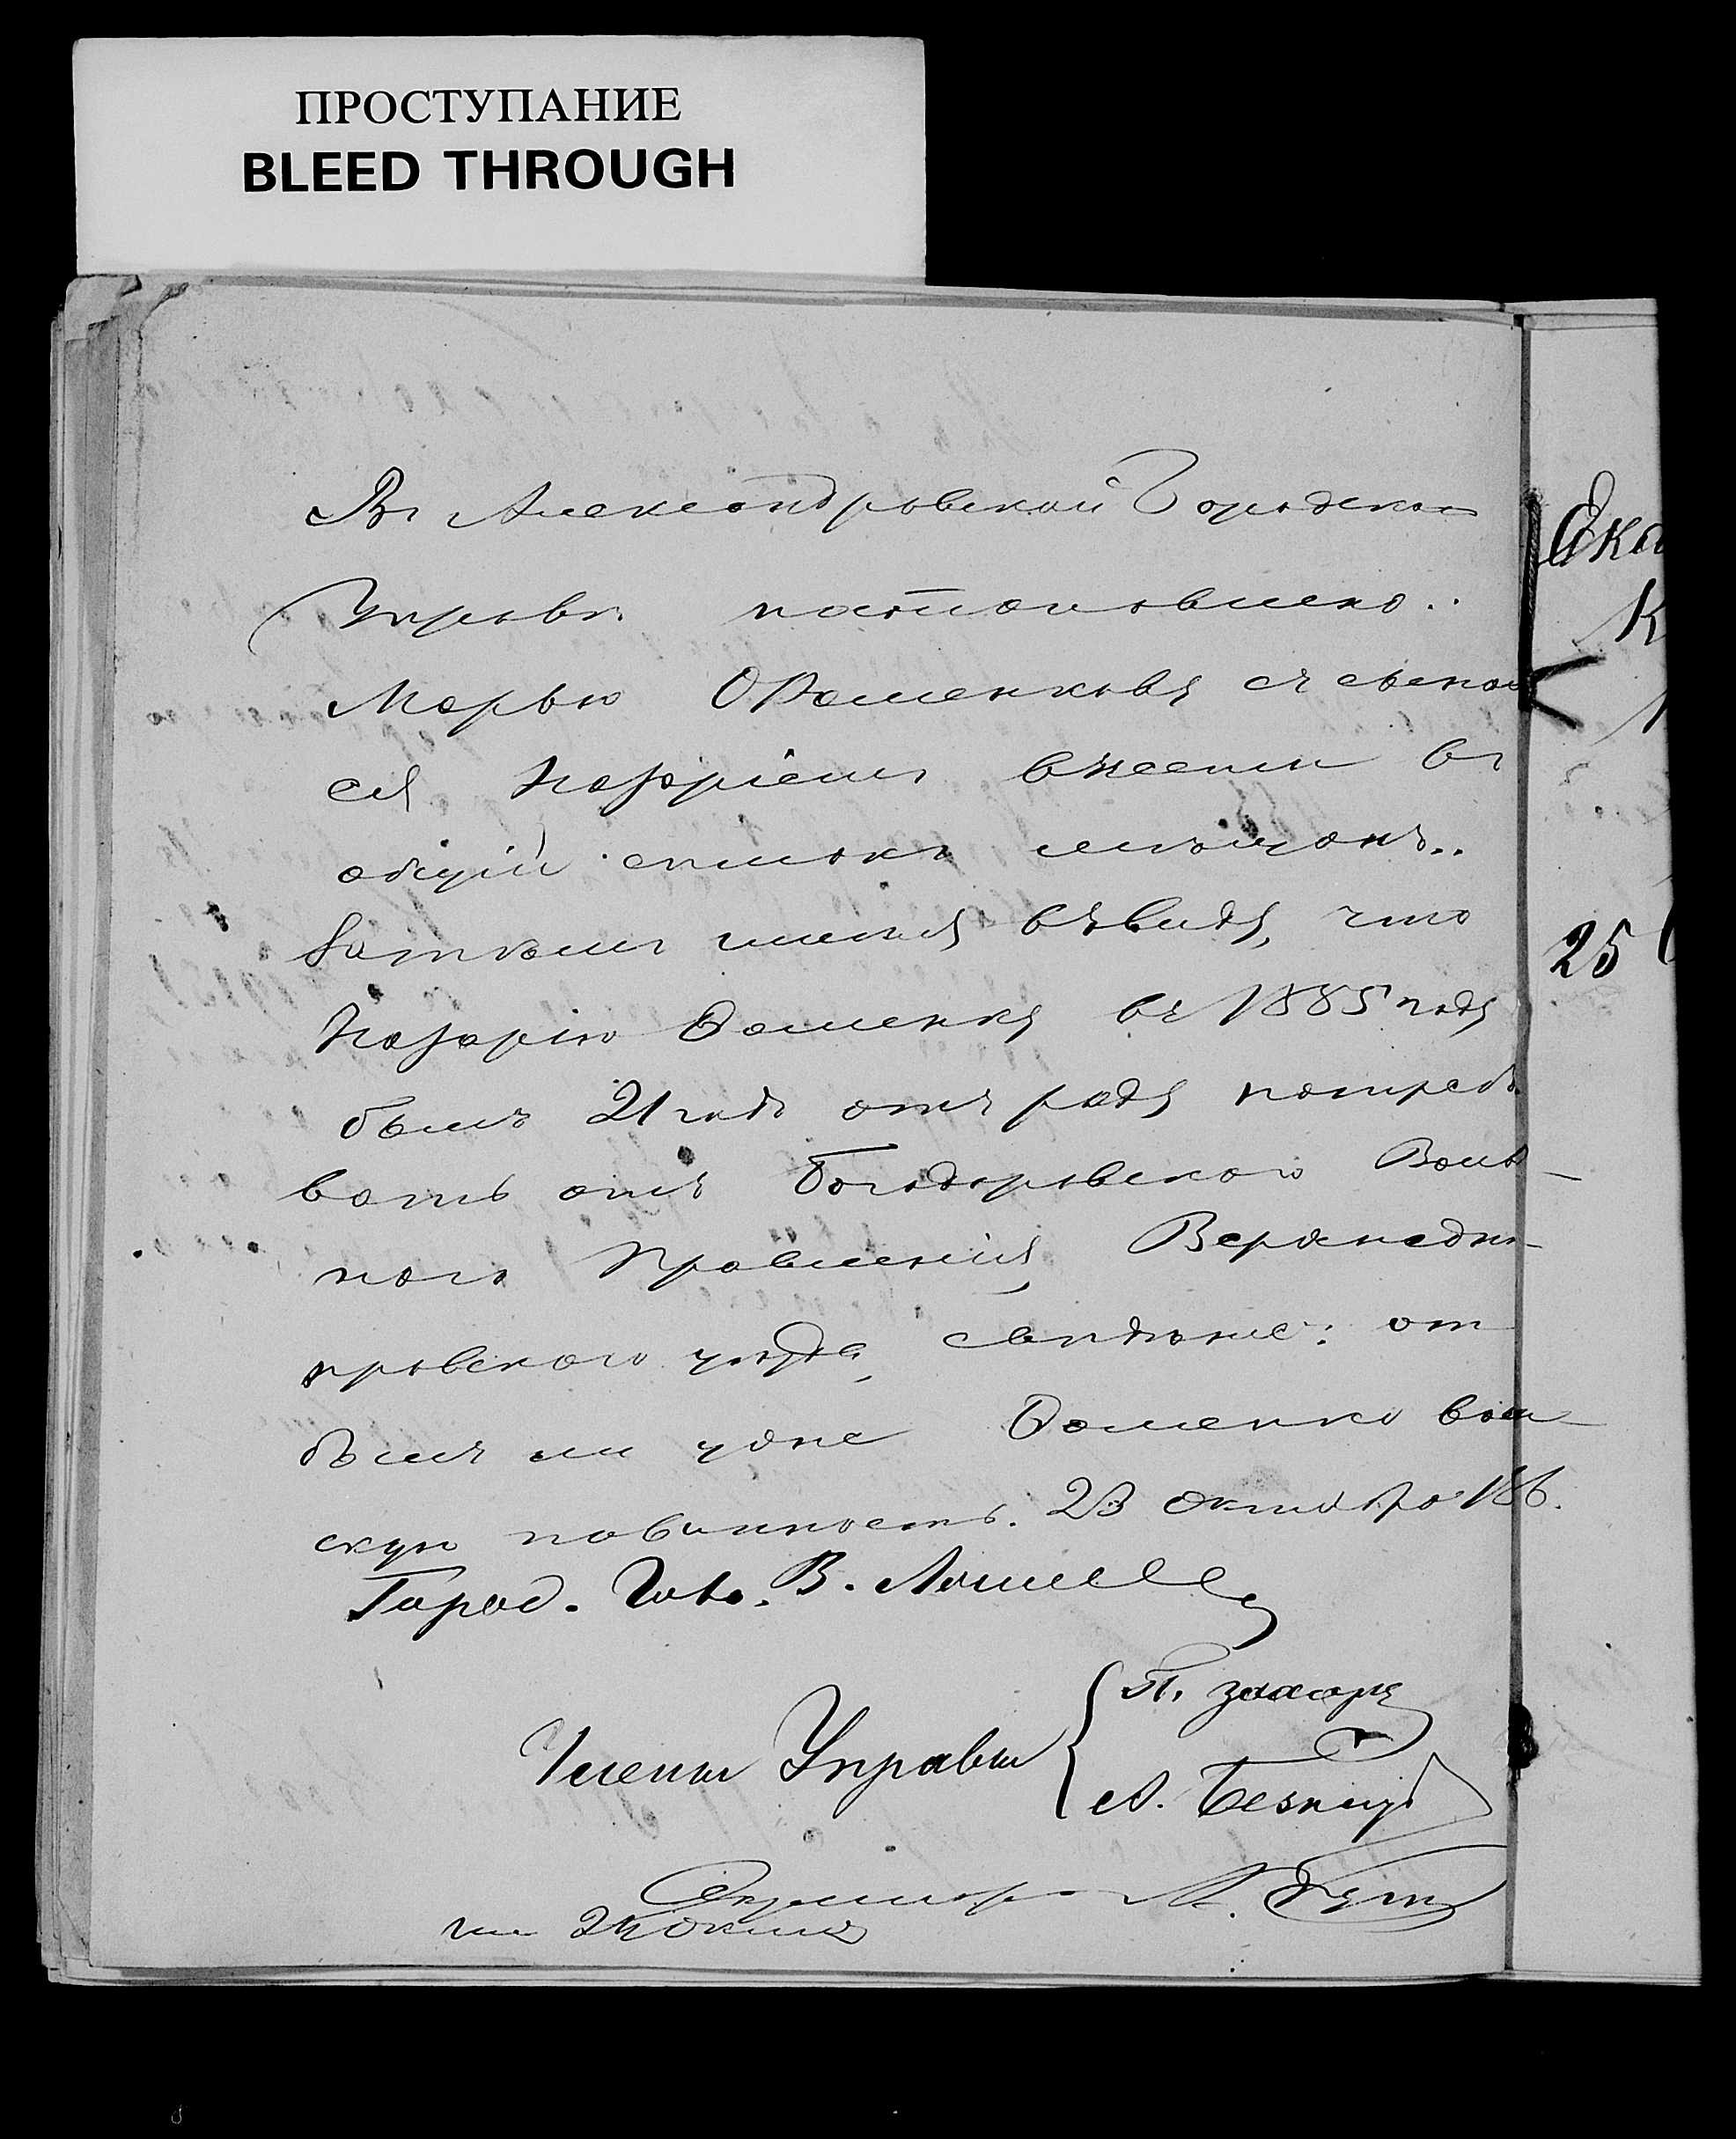 ПРОСТУПАНИЕ
BLEED THROUGH
Въ Александровской Городской
Управѣ постановлено:
Марью Фоменкову съ сыномъ
ея Назаріемъ внести въ
общій списокъ мѣщанъ..
Затѣмъ имѣя въ виду, что
Назарію Фоменку въ 1885 году
былъ 21 годъ отъ роду потребо
вать отъ Богодаровского Волост
ного Правленія, Верхнеднѣ
провского уѣзда, свѣдѣніе: от
былъ ли уже Фоменко воин
скую повинность. 23 Октября 188
Город. Гол. В.
Члены Управы
П. Захарь
А.
Секретарь М.
25